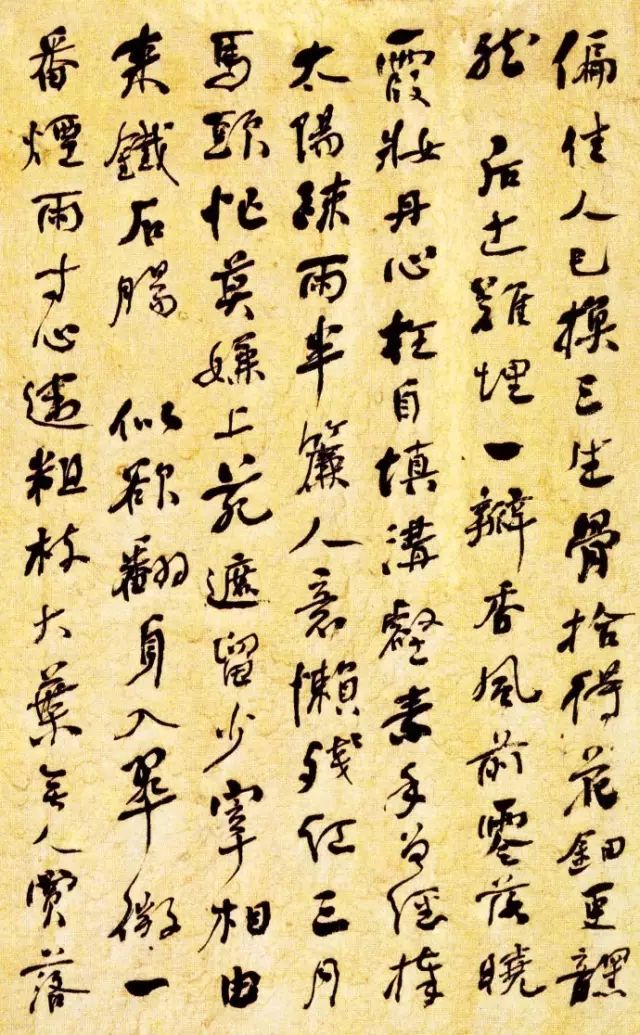 偏佳人已換三生骨拾得花鈿更黯
然 后土難埋一瓣香風前零落曉
霞妝丹心枉自填溝壑素手曾經捧
太陽疎雨半簾人意懶殘紅三月
馬頭忙莫嫌上苑遮留少宰相由
來鐵石腸 似欲翻身入翠微一
番煙雨寸心違粗枝大葉無人賞落